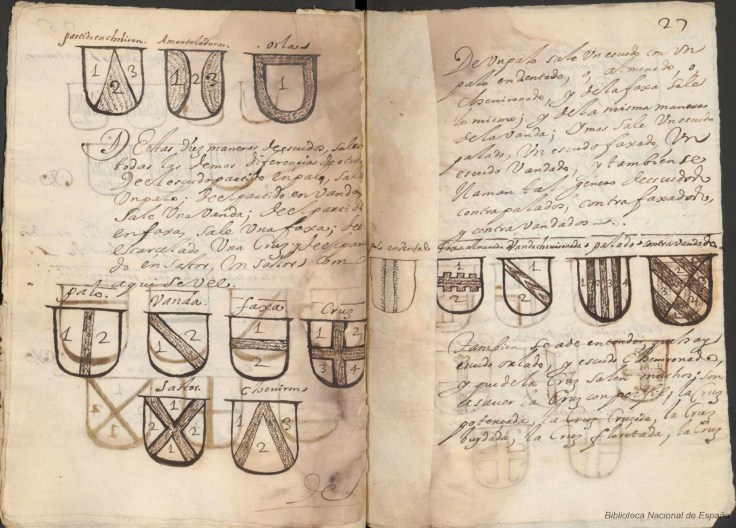 partido en cheliron. Amanteladura. orla
1 2 3 1 2 3 1
De Estas diez maneras de escudo, salen
todas las demas diferencias
del escudo partido en palo, sale
Un palo; del partido en Vanda
Sale Una Vanda; del partido
en faxa, Sale Una faxa; de
escarcelado Una Cruz; y del
do en Sastor, Un Sastor com
aqui se Vee.
palo. Vanda faxa Cruz
1 2 1 2 1 2 1 2 3 4
Sastor. Chevirons
1 2 2 1 2
27
De Un palo sale Un escudo con Un
palo endentado, o, almenado, o,
Chevironado, y de la faxa Sale
lo mismo; y de la misma manera
de la Vanda; Y mas Sale Un escudo
palado, Un escudo faxado, Un
escudo Vandado, y tambien se
llaman tal genero de escudos
contrapalados, contrafaxados,
y contravandados
palo endentado faxa almenada Vanda chevironada palado contravandado
1 2 1 2 1 2 3 4
tambien se a de entender, que hay
escudo palado, y escudo Chevironado,
y que de la Cruz Salen muchos; Son
a saver la Cruz con perfil, la Cruz
potençada, la Cruz Cruçada, la Cruz
la Cruz floretada, la Cruz
Biblioteca Nacional de España